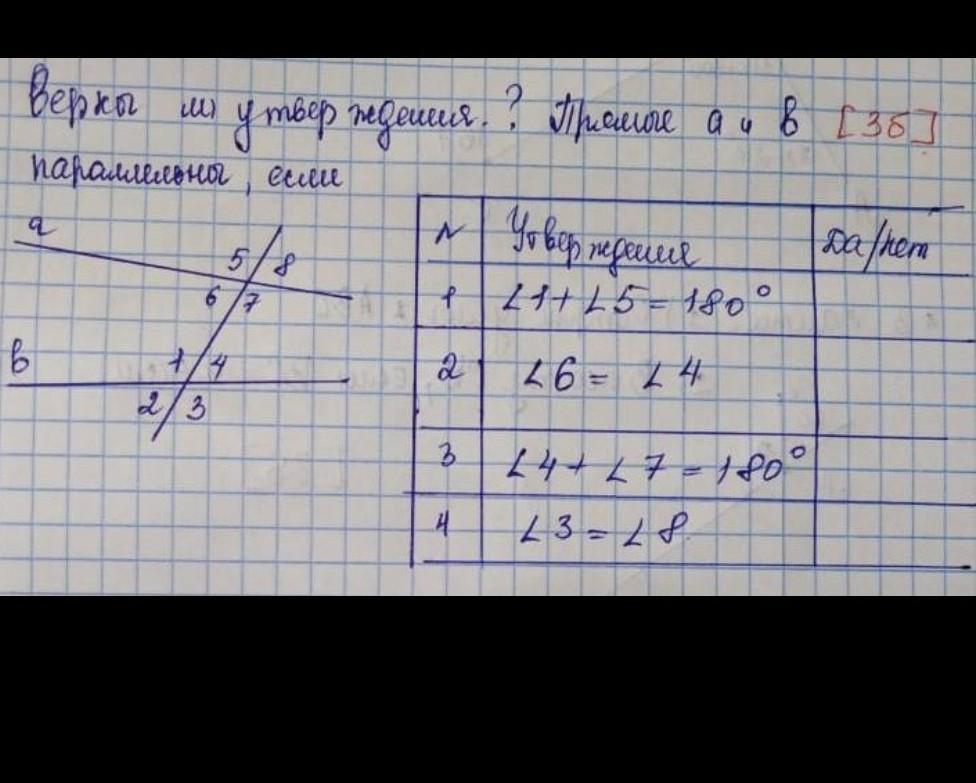 Верны ли утверждения.? Прямые a и в [3б]
параллельны, если
a
5 8
6 7
в 1 4
2 3
N Утверждения Да/нет
1 ∠1 + ∠5 = 180°
2 ∠6 = ∠4
3 ∠4 + ∠7 = 180°
4 ∠3 = ∠8.